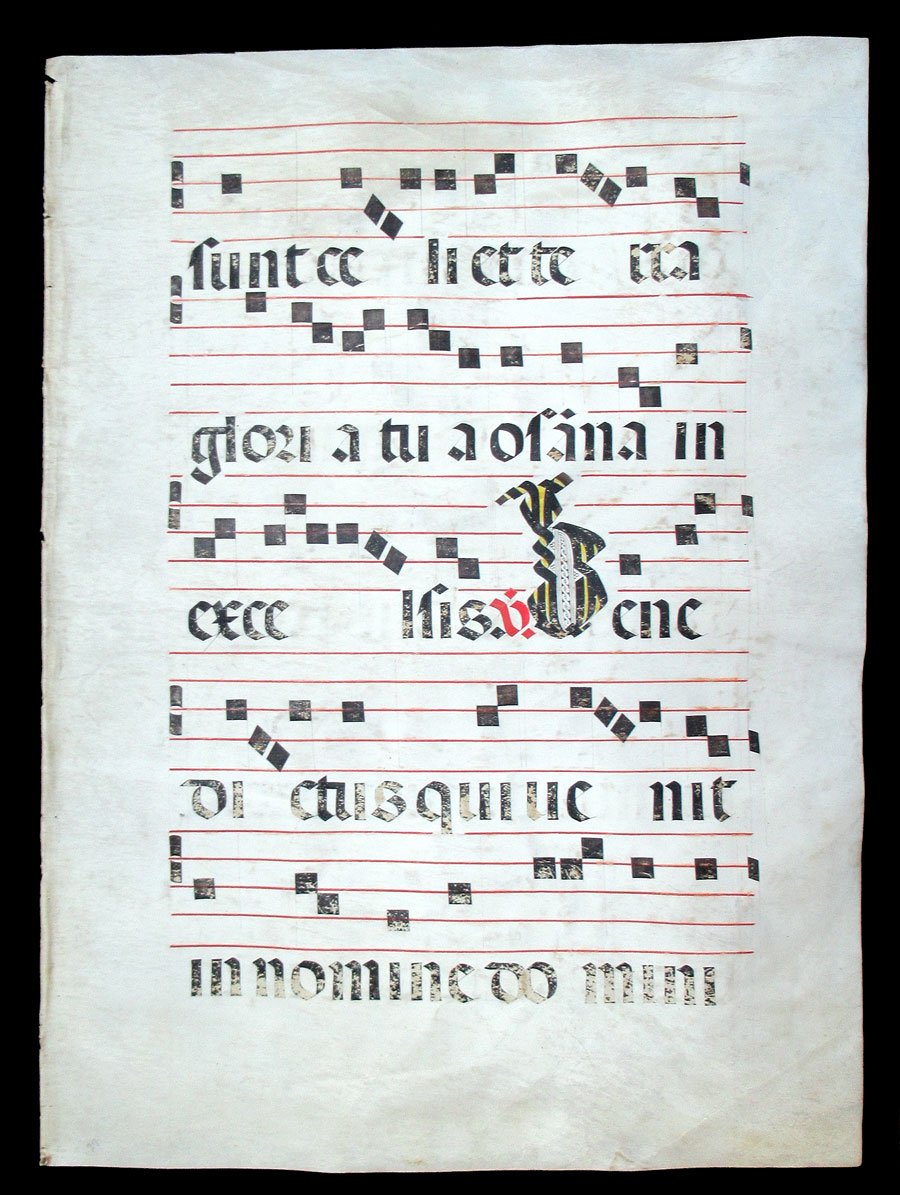 sunt ce li et te rra
gloria tu a osãna in
exce lsis. V̈. Bene
di ctus qui ue nit
in nomine do mini